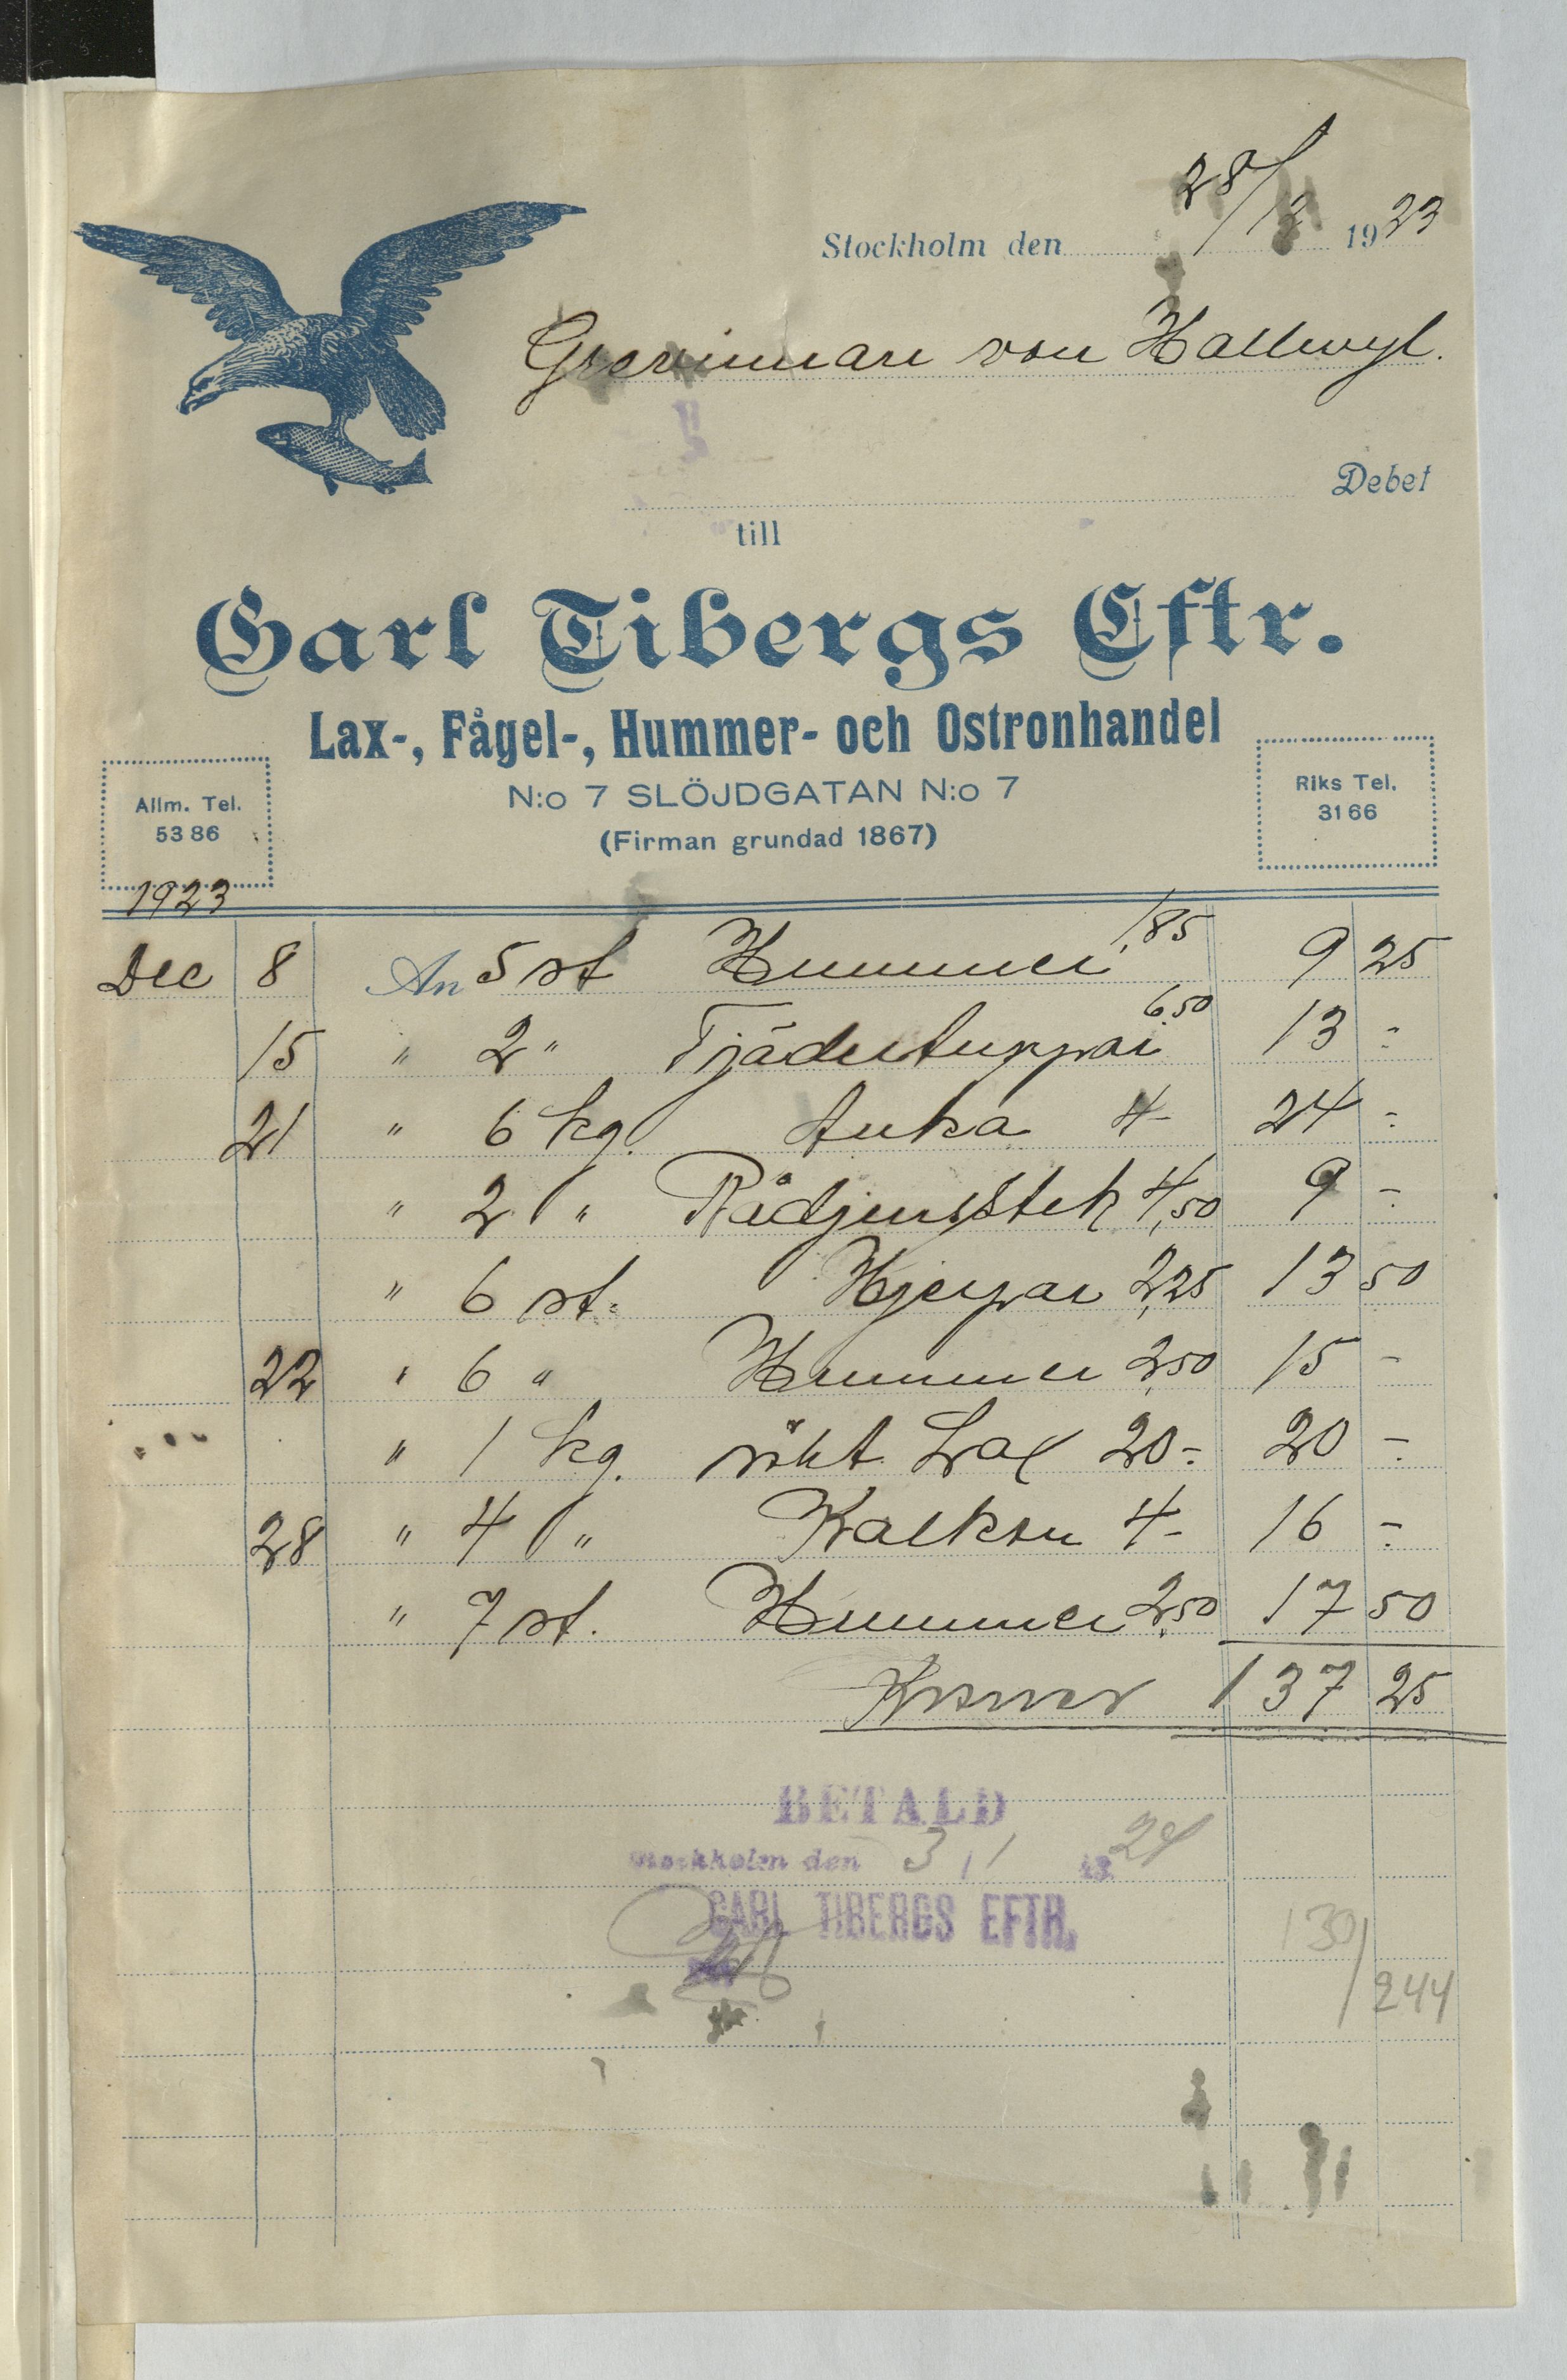 28/12 1923
Stockholm den
Grevinnan von Hallwyl.
Debet
till
Carl Tibergs Eftr.
Lax-, Fågel-, Hummer- och Ostronhandel
N:o 7 SLÖJDGATAN N:o 7
(Firman grundad 1867)
Allm. Tel.
53 86
Riks Tel.
31 66
1923
Dec 8 An 5 st Hummer 1,85 9 25
15 " 2 " Tjädertuppar 6,50 13 -
21 " 6 kg. Anka 4- 24 -
" 2 " Rådjursstek 4,50 9 -
" 6 st. Hjerpar 2,25 13 50
22 " 6 " Hummer 2,50 15 -
" 1 kg. rökt Lax 20- 20 -
28 " 4 " Kalkon 4- 16 -
" 7 st. Hummer 2,50 17 50
Kronor 137 25
BETALD
Stockholm den 3/1 1924
CARL TIBERGS EFTR.
130/244